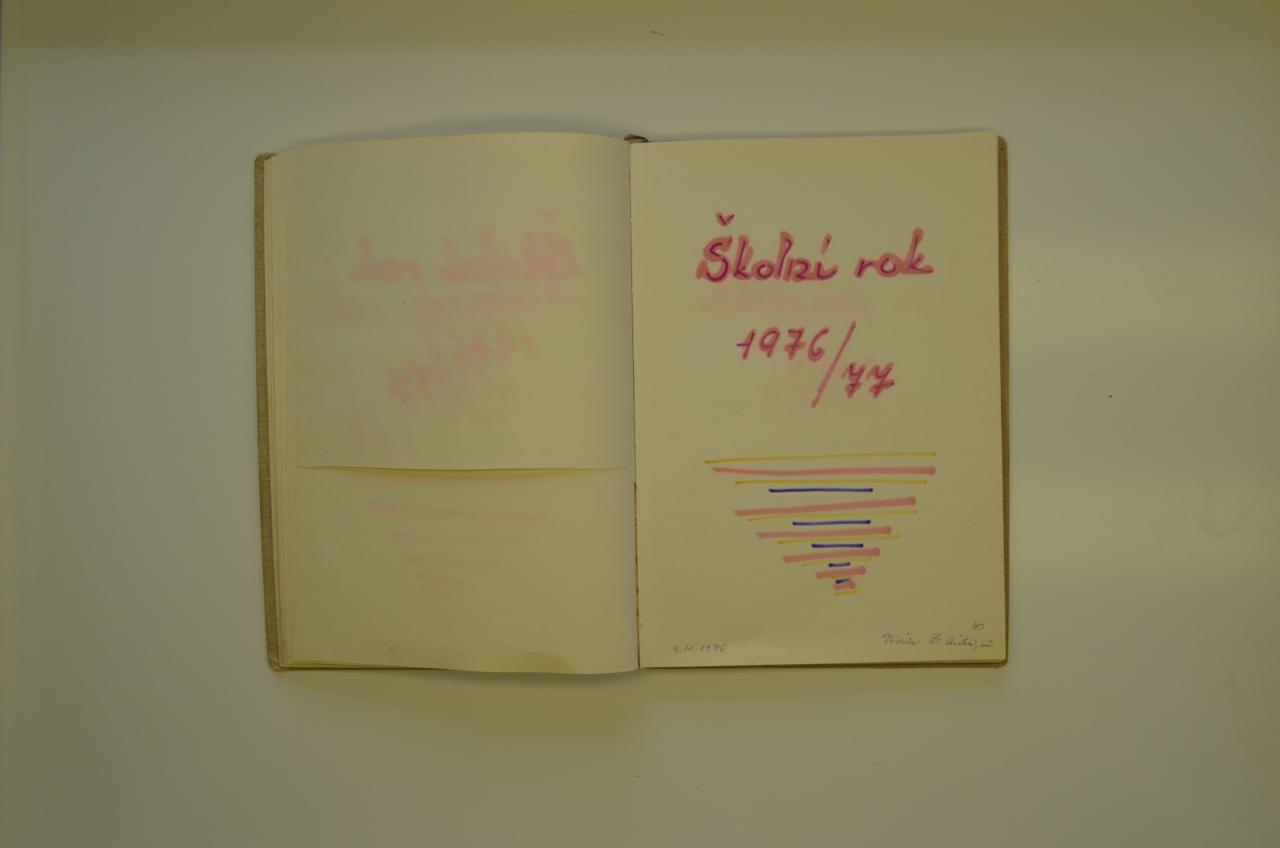 Školní rok
1976/77
40
9.11.1976 Viděla